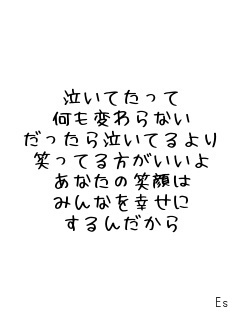 泣いてたって
何も変わらない
だったら泣いてるより
笑ってる方がいいよ
あなたの笑顔は
みんなを幸せに
するんだから
Es